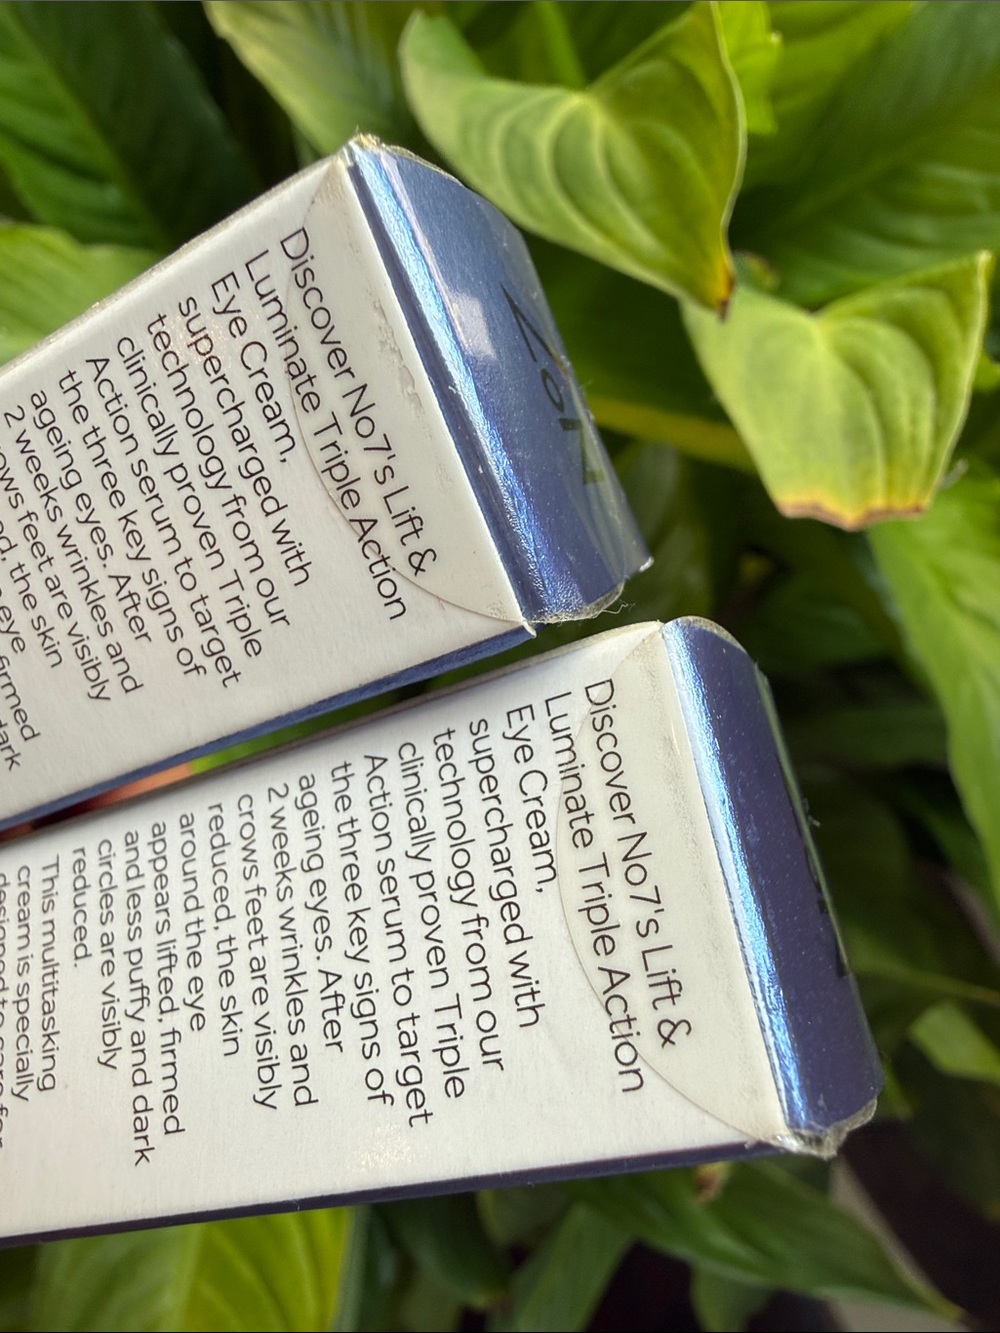 Discover No7's Lift &
Luminate Triple Action
Eye Cream,
supercharged with
technology from our
clinically proven Triple
Action serum to target
the three key signs of
ageing eyes. After
2 weeks wrinkles and
crows feet are visibly
the skin
eye
firmed
dark
Discover No7's Lift &
Luminate Triple Action
Eye Cream,
supercharged with
technology from our
clinically proven Triple
Action serum to target
the three key signs of
ageing eyes. After
2 weeks wrinkles and
crows feet are visibly
reduced, the skin
around the eye
appears lifted, firmed
and less puffy and dark
circles are visibly
reduced.
This multitasking
cream is specially